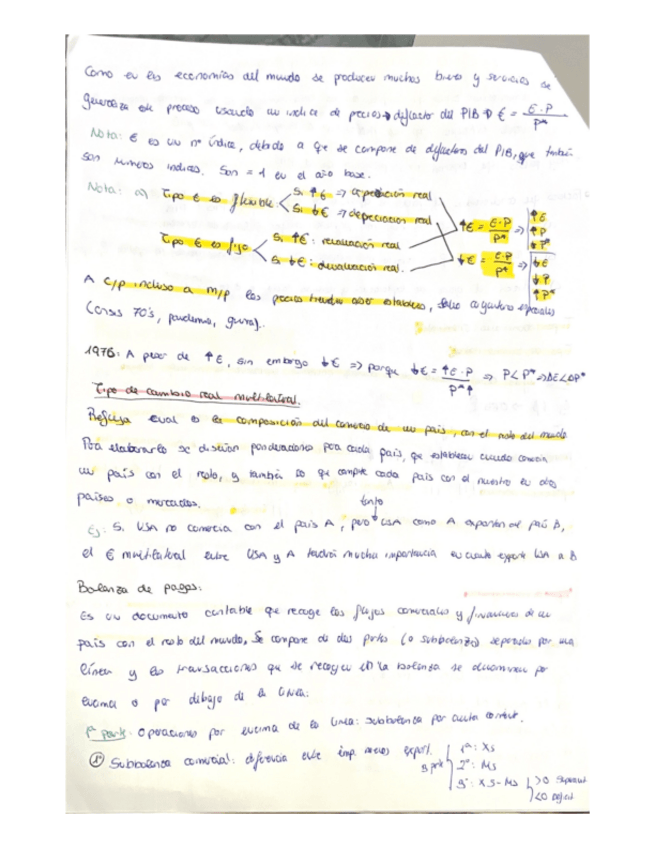 Como en las economías del mundo se producen muchos bienes y servicios se
generaliza este proceso usando un indice de precios → deflactor del PIB → € = E·P / P*
Nota: € es un nº índice, debido a que se compone de deflactores del PIB, que también
son números indices. Son = 1 en el año base.
Nota: a) Tipo € es flexible: Si ↑€ => apreciación real
Si ↓€ => depreciación real
Tipo € es fijo Si ↑€: revaluación real
Si ↓€: devaluación real.
↑€ = E·P / P* => ↑E ↑P ↓P*
↓€ = E·P / P* => ↓E ↓P ↑P*
A c/p incluso a m/p los precios tienden a ser estables, salvo coyunturas especiales
(crisis 70's, pandemia, guerra).
1976: A pesar de ↑E, sin embargo ↓€ => porque ↓€ = ↑E·P / P*↑ => P<P* => ΔE<ΔP*
Tipo de cambio real multilateral.
Refleja cual es la composición del comercio de un país, con el resto del mundo.
Para elaborarlo se diseñan ponderaciones para cada país, que establecen cuando comercia
un país con el resto, y también lo que compite cada país con el nuestro en otros
países o mercados.
tanto
Ej: Si USA no comercia con el país A, pero USA como A exportan al país B,
el € multilateral entre USA y A tendrá mucha importancia en cuanto exporte USA a B
Balanza de pagos:
Es un documento contable que recoge los flujos comerciales y financieros de un
país con el resto del mundo. Se compone de dos partes (o subbalanzas) separadas por una
línea y las transacciones que se recogen en la balanza se denominan por
encima o por debajo de la línea:
1ª parte: Operaciones por encima de la línea: subbalanza por cuenta corriente.
① Subbalanza comercial: diferencia entre imp. menos export.
3 prts
1º: Xs
2º: Ms
3º: Xs-Ms
>0 Superavit
<0 Déficit